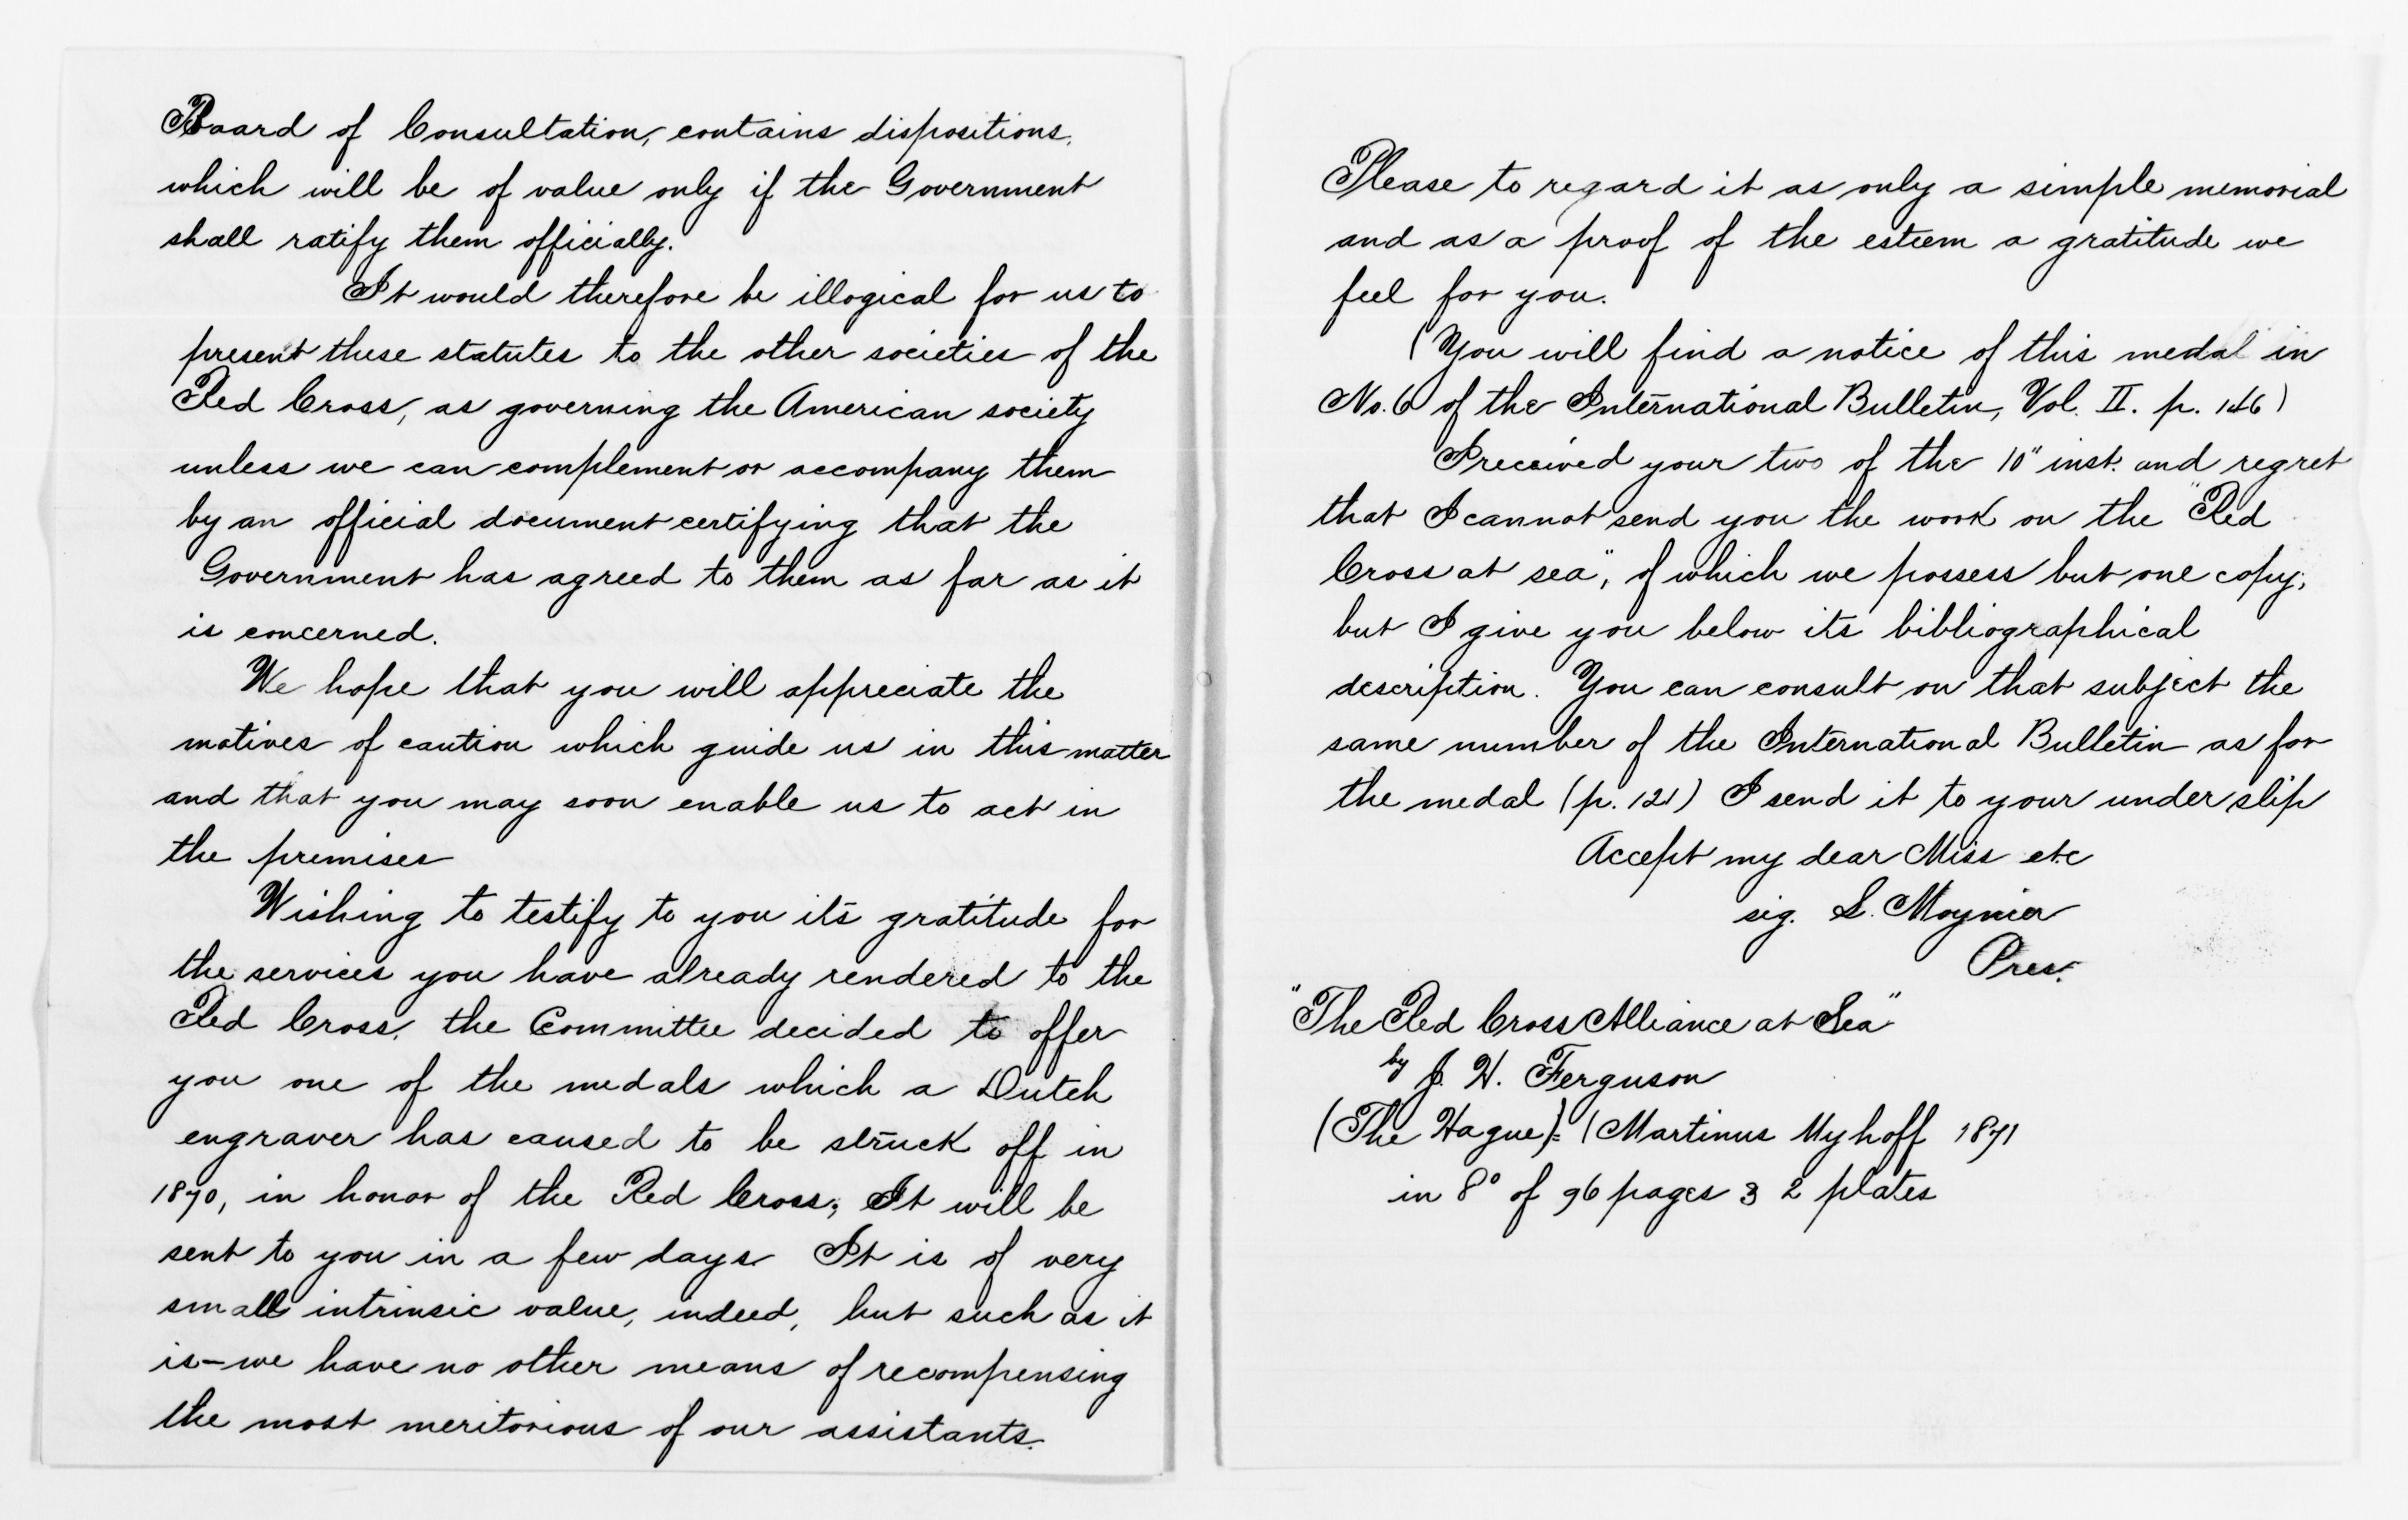 Board of Consultation, contains dispositions,
which will be of value only if the Government
shall ratify them officially.
It would therefore be illogical for us to
present these statutes to the other societies of the
Red Cross, as governing the American society
unless we can complement or accompany them
by an official document certifying that the
Government has agreed to them as far as it
is concerned.
We hope that you will appreciate the
motives of caution which guide us in this matter
and that you may soon enable us to act in
the premises
Wishing to testify to you its gratitude for
the services you have already rendered to the
Red Cross, the Committee decided to offer
you one of the medals which a Dutch
engraver has caused to be struck off in
1870, in honor of the Red Cross; It will be
sent to you in a few days. It is of very
small intrinsic value, indeed, but such as it
is—we have no other means of recompensing
the most meritorious of our assistants.
Please to regard it as only a simple memorial
and as a proof of the esteem a gratitude we
feel for you.
(You will find a notice of this medal in
No. 6 of the International Bulletin, Vol. II. p. 146)
I received your two of the 10" inst. and regret
that I cannot send you the work on the "Red
Cross at sea", of which we possess but one copy,
but I give you below its bibliographical
description. You can consult on that subject the
same number of the International Bulletin as for
the medal (p. 121) I send it to your under slip
Accept my dear Miss etc
sig. G. Moynier
Pres.
"The Red Cross Alliance at Sea"
by J. H. Ferguson
(The Hague). (Martinus Nyhoff 1871
in 8° of 96 pages & 2 plates